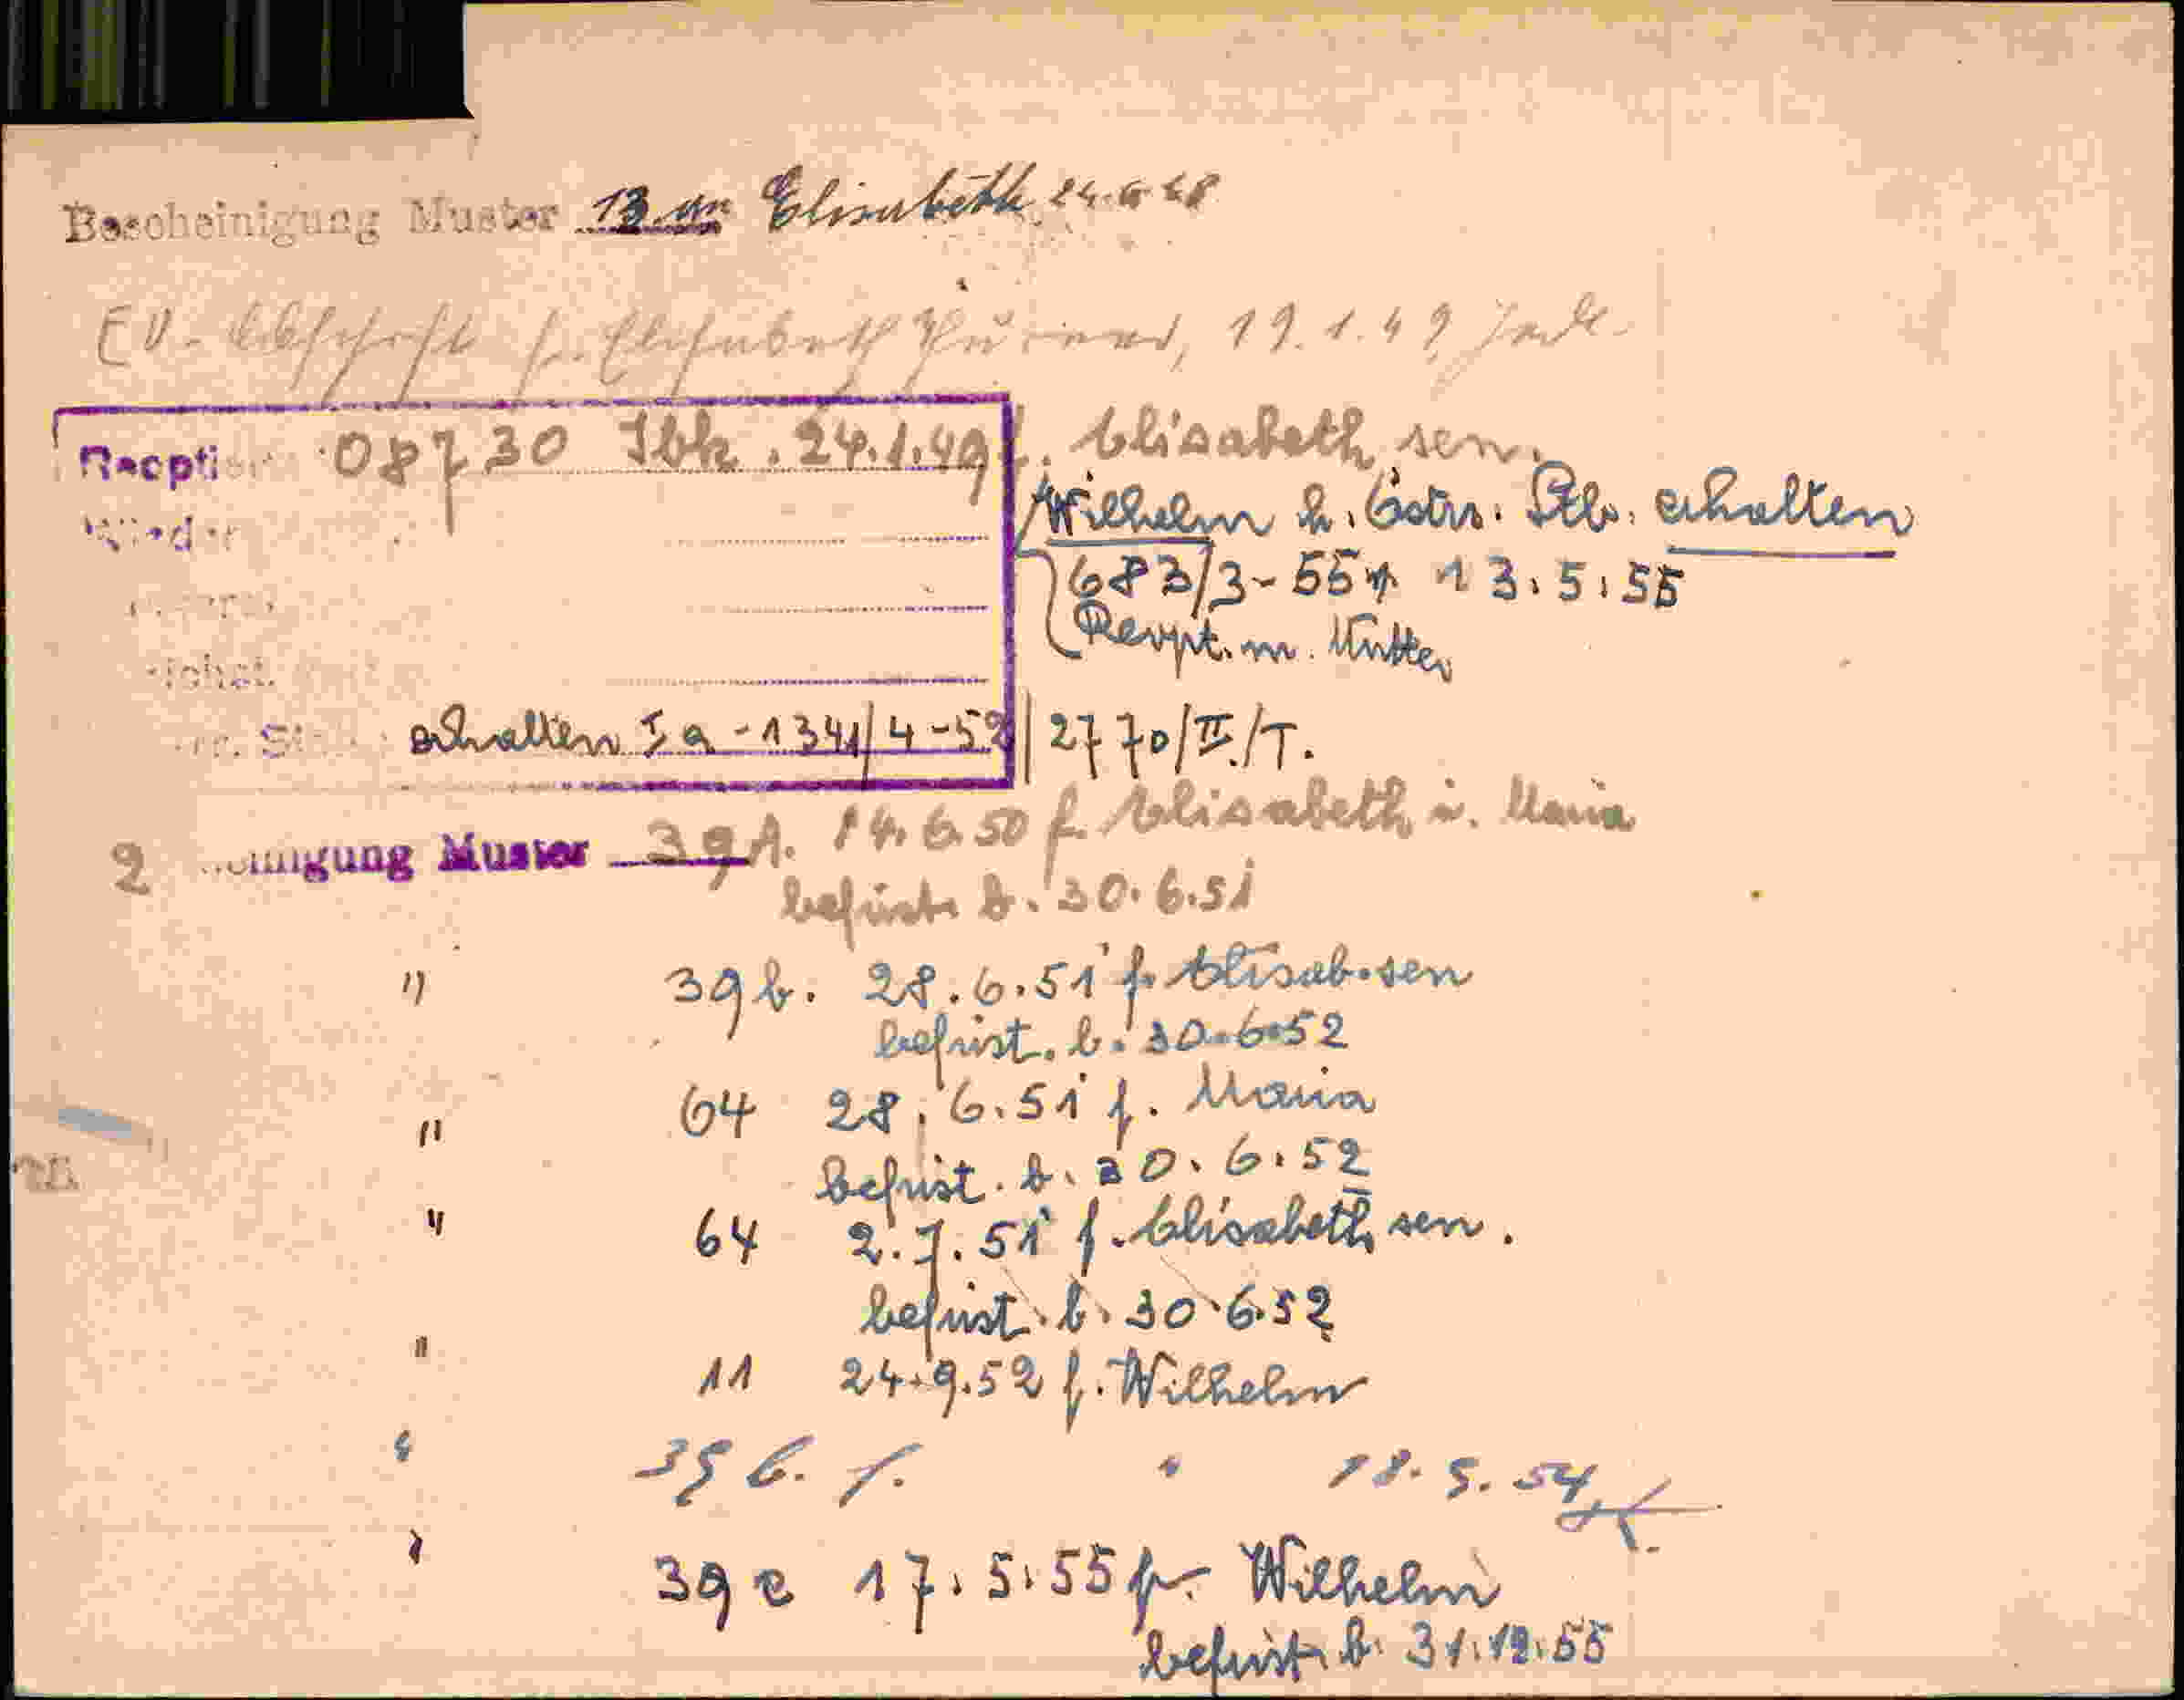 Bescheinigung Muster 13 an Elisabeth 24.6.48
EV. Abschrift f. Elisabeth 19.1.49
Reoption 08730 Ibk. 24.1.49 f. Elisabeth sen.
Wilhelm h. Östr. Stb. erhalten
683/3-55 13.5.55
m. Mutter
erhalten Ia-1341/4-52 2770/II/T.
2 einigung Muster 39A. 14.6.50 f. Elisabeth u. Maria
befrist. b. 30.6.51
" 39b. 28.6.51 f. Elisab. sen
befrist. b. 30.6.52
" 64 28.6.51 f. Maria
befrist. b. 30.6.52
" 64 2.7.51 f. Elisabeth sen.
befrist. b. 30.6.52
" 11 24.9.52 f. Wilhelm
" 39 b. f. " 18.5.54
" 39c 17.5.55 f. Wilhelm
befrist. b. 31.12.55